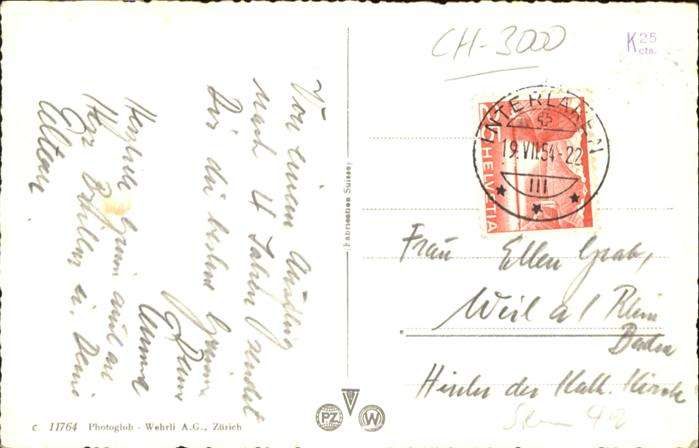 CH-3000
K 25 cts.
INTERLAKEN
19.VII.54-22
III
HELVETIA
Von einem Ausflug
nach 4 Jahren sendet
Dir die besten Grüsse
Herzliche Grüsse auch an
Herr
Eltern
Fabrication Suisse
Frau Ellen Grab,
Weil a/ Rhein
Baden
Hinter der Kath. Kirche
c 11764 Photoglob - Wehrli A.G., Zürich
PZ W